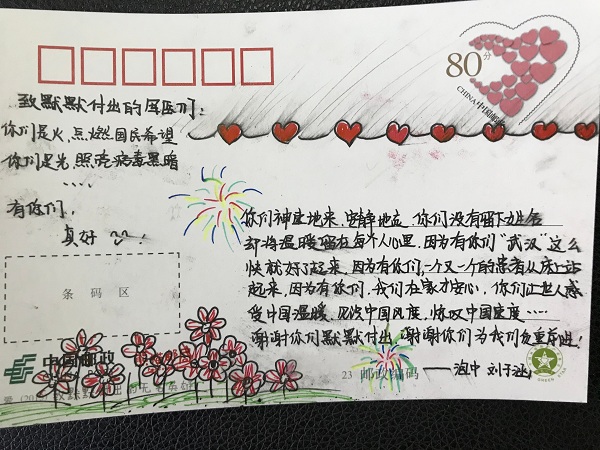 80分
CHINA 中国邮政
致默默付出的军医们：
你们是火，点燃国民希望
你们是光，照亮病毒黑暗
....
有你们，
真好～～！
你们神速地来，安静地走，你们没有留下姓名
却将温暖留在每个人心里，因为有你们“武汉”这么
快就好了起来，因为有你们，一个又一个的患者从床上站
起来，因为有你们，我们在家才安心，你们让世人感
受中国温暖，见证中国风度，惊叹中国速度.....
谢谢你们默默付出，谢谢你们为我们负重前进！
条码区
中国邮政
23 邮政编码
GREEN